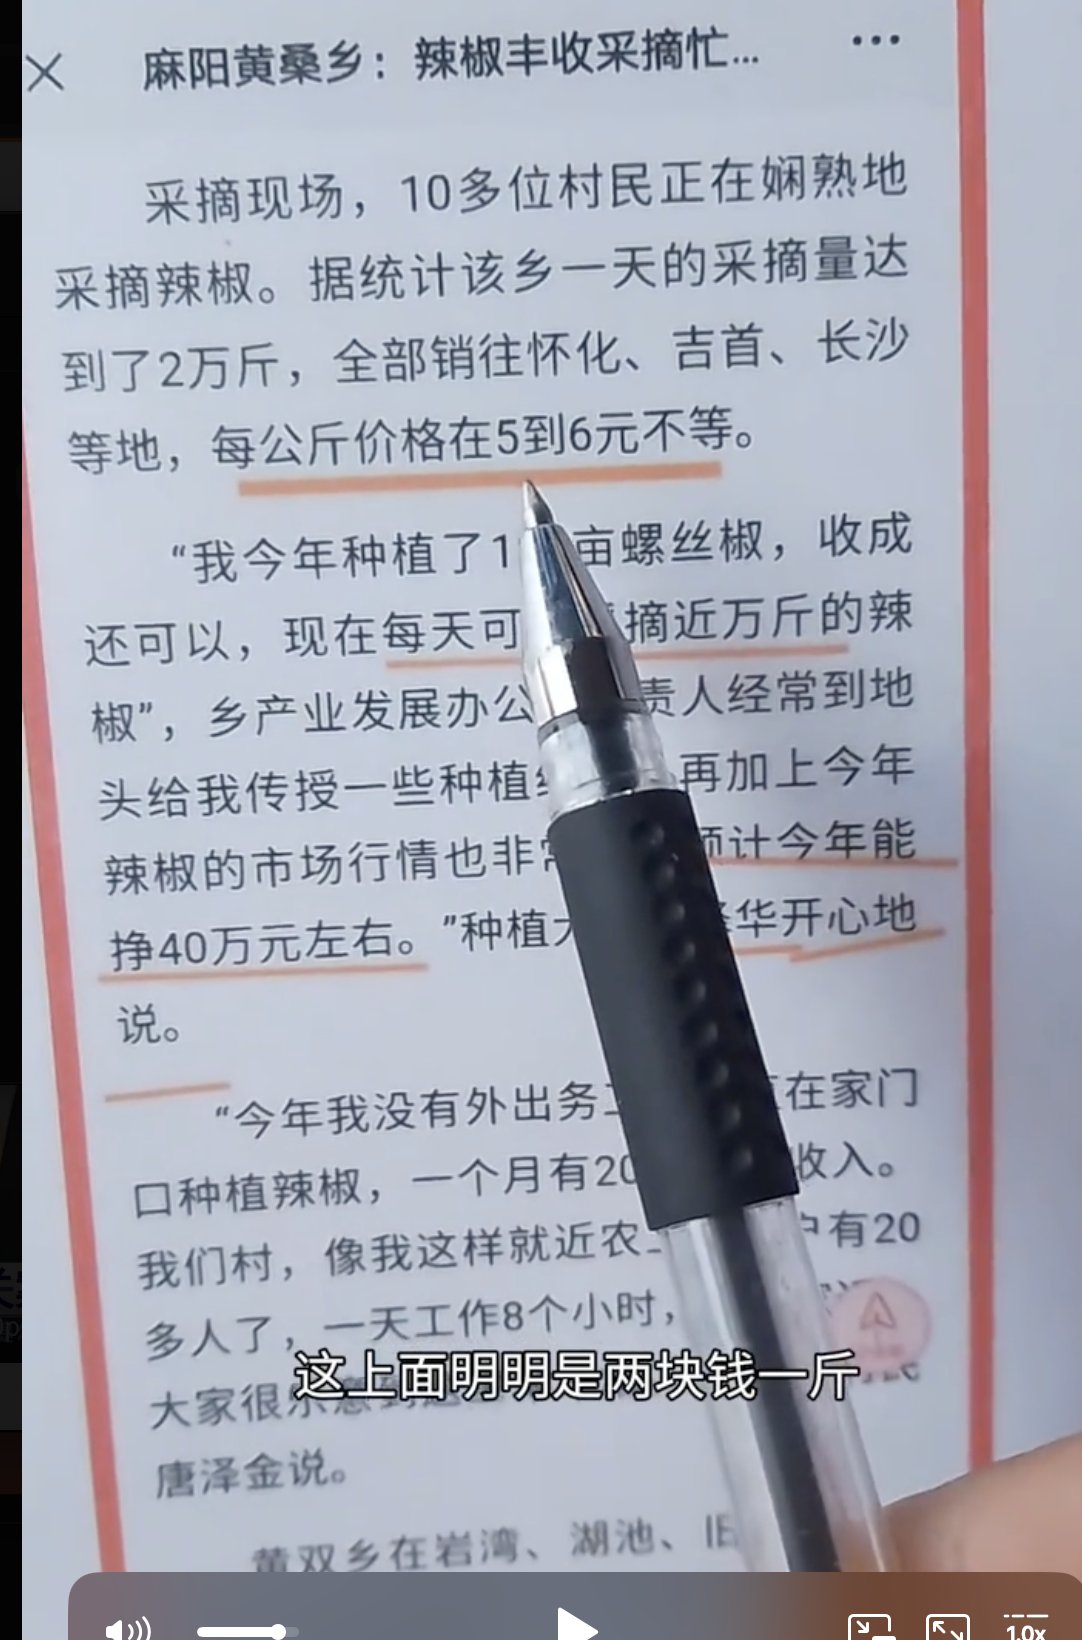 麻阳黄桑乡：辣椒丰收采摘忙...
采摘现场，10多位村民正在娴熟地
采摘辣椒。据统计该乡一天的采摘量达
到了2万斤，全部销往怀化、吉首、长沙
等地，每公斤价格在5到6元不等。
“我今年种植了1 亩螺丝椒，收成
还可以，现在每天可 摘近万斤的辣
椒”，乡产业发展办公 责人经常到地
头给我传授一些种植 再加上今年
辣椒的市场行情也非 计今年能
挣40万元左右。”种植 华开心地
说。
“今年我没有外出务 在家门
口种植辣椒，一个月有20 收入。
我们村，像我这样就近农 户有20
多人了，一天工作8个小时，
这上面明明是两块钱一斤
大家很乐意
唐泽金说。
黄双乡在岩湾、湖池、旧
1.0x